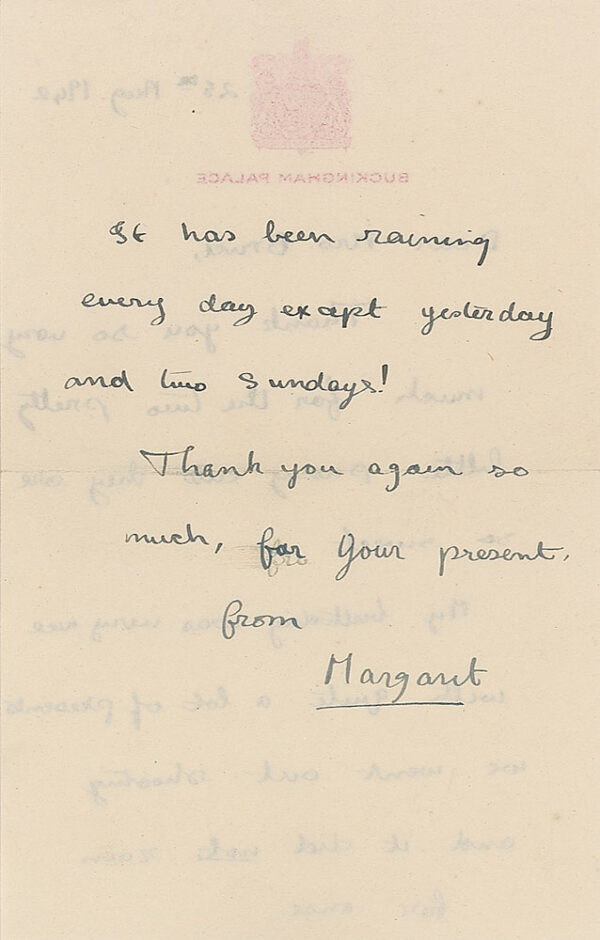 BUCKINGHAM PALACE
It has been raining
every day except yesterday
and two Sundays!
Thank you again so
much, for your present.
from
Margaret